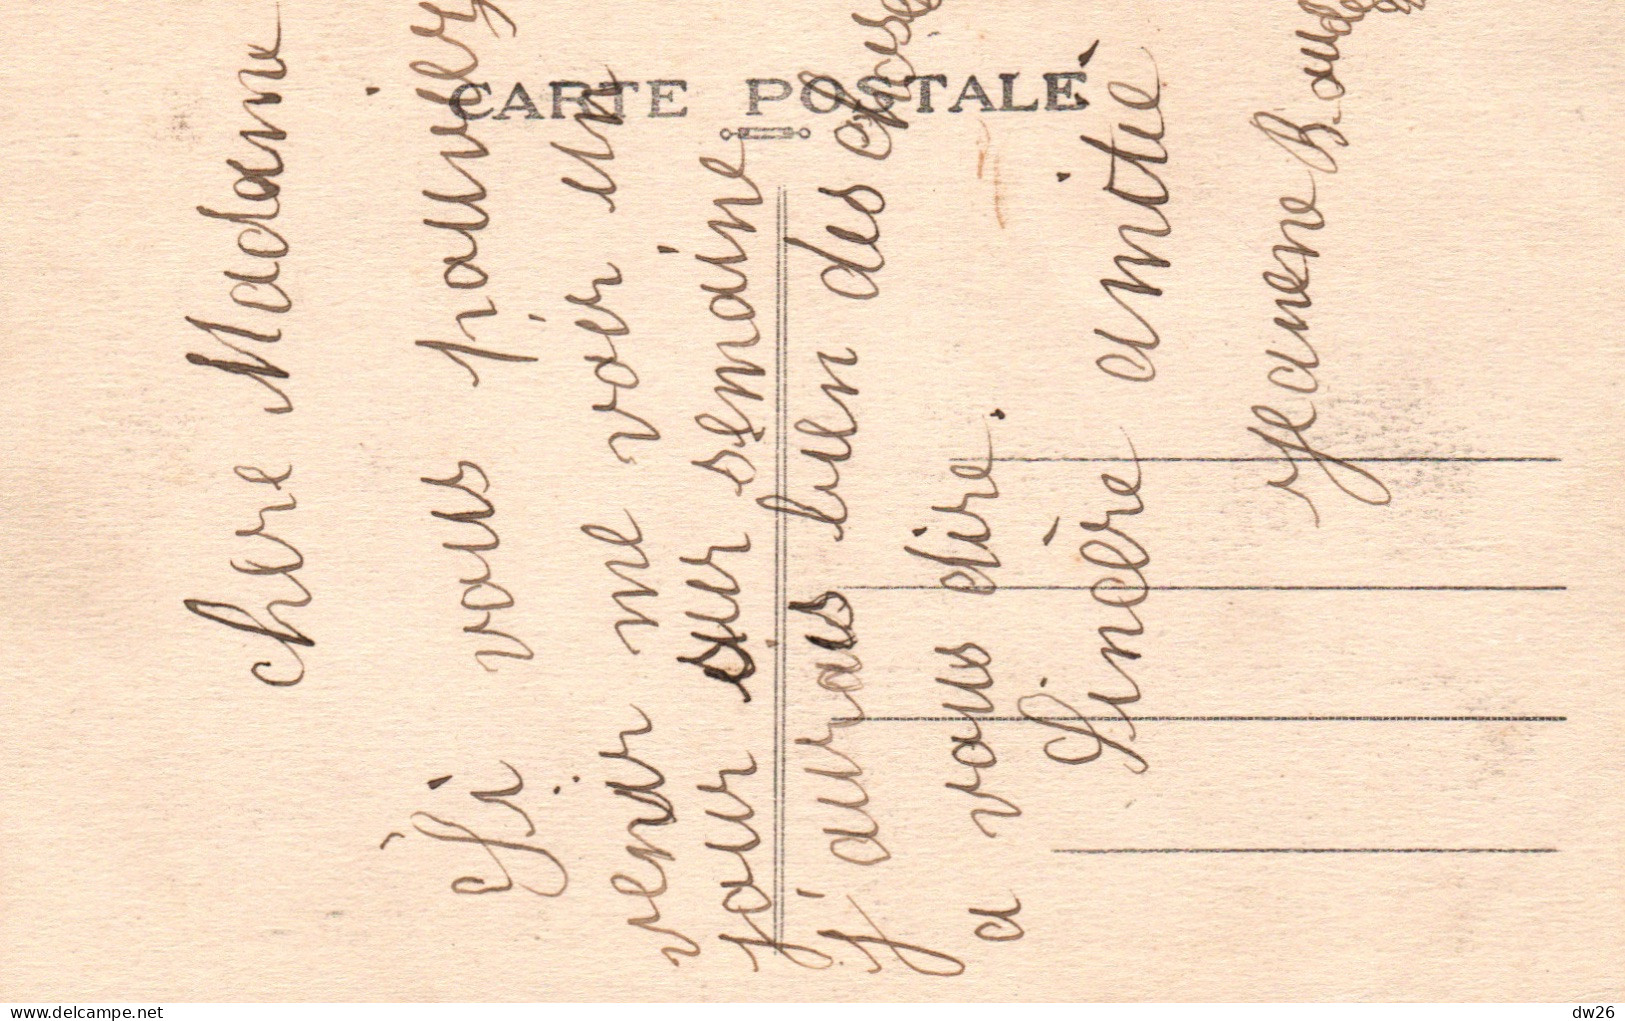 CARTE POSTALE
chere Madame
Si vous pouvez
venir me voir un
jour sur semaine
j'aurais bien des choses
a vous dire.
Sincère amitié
Jeanne
delcampe.net
dw26